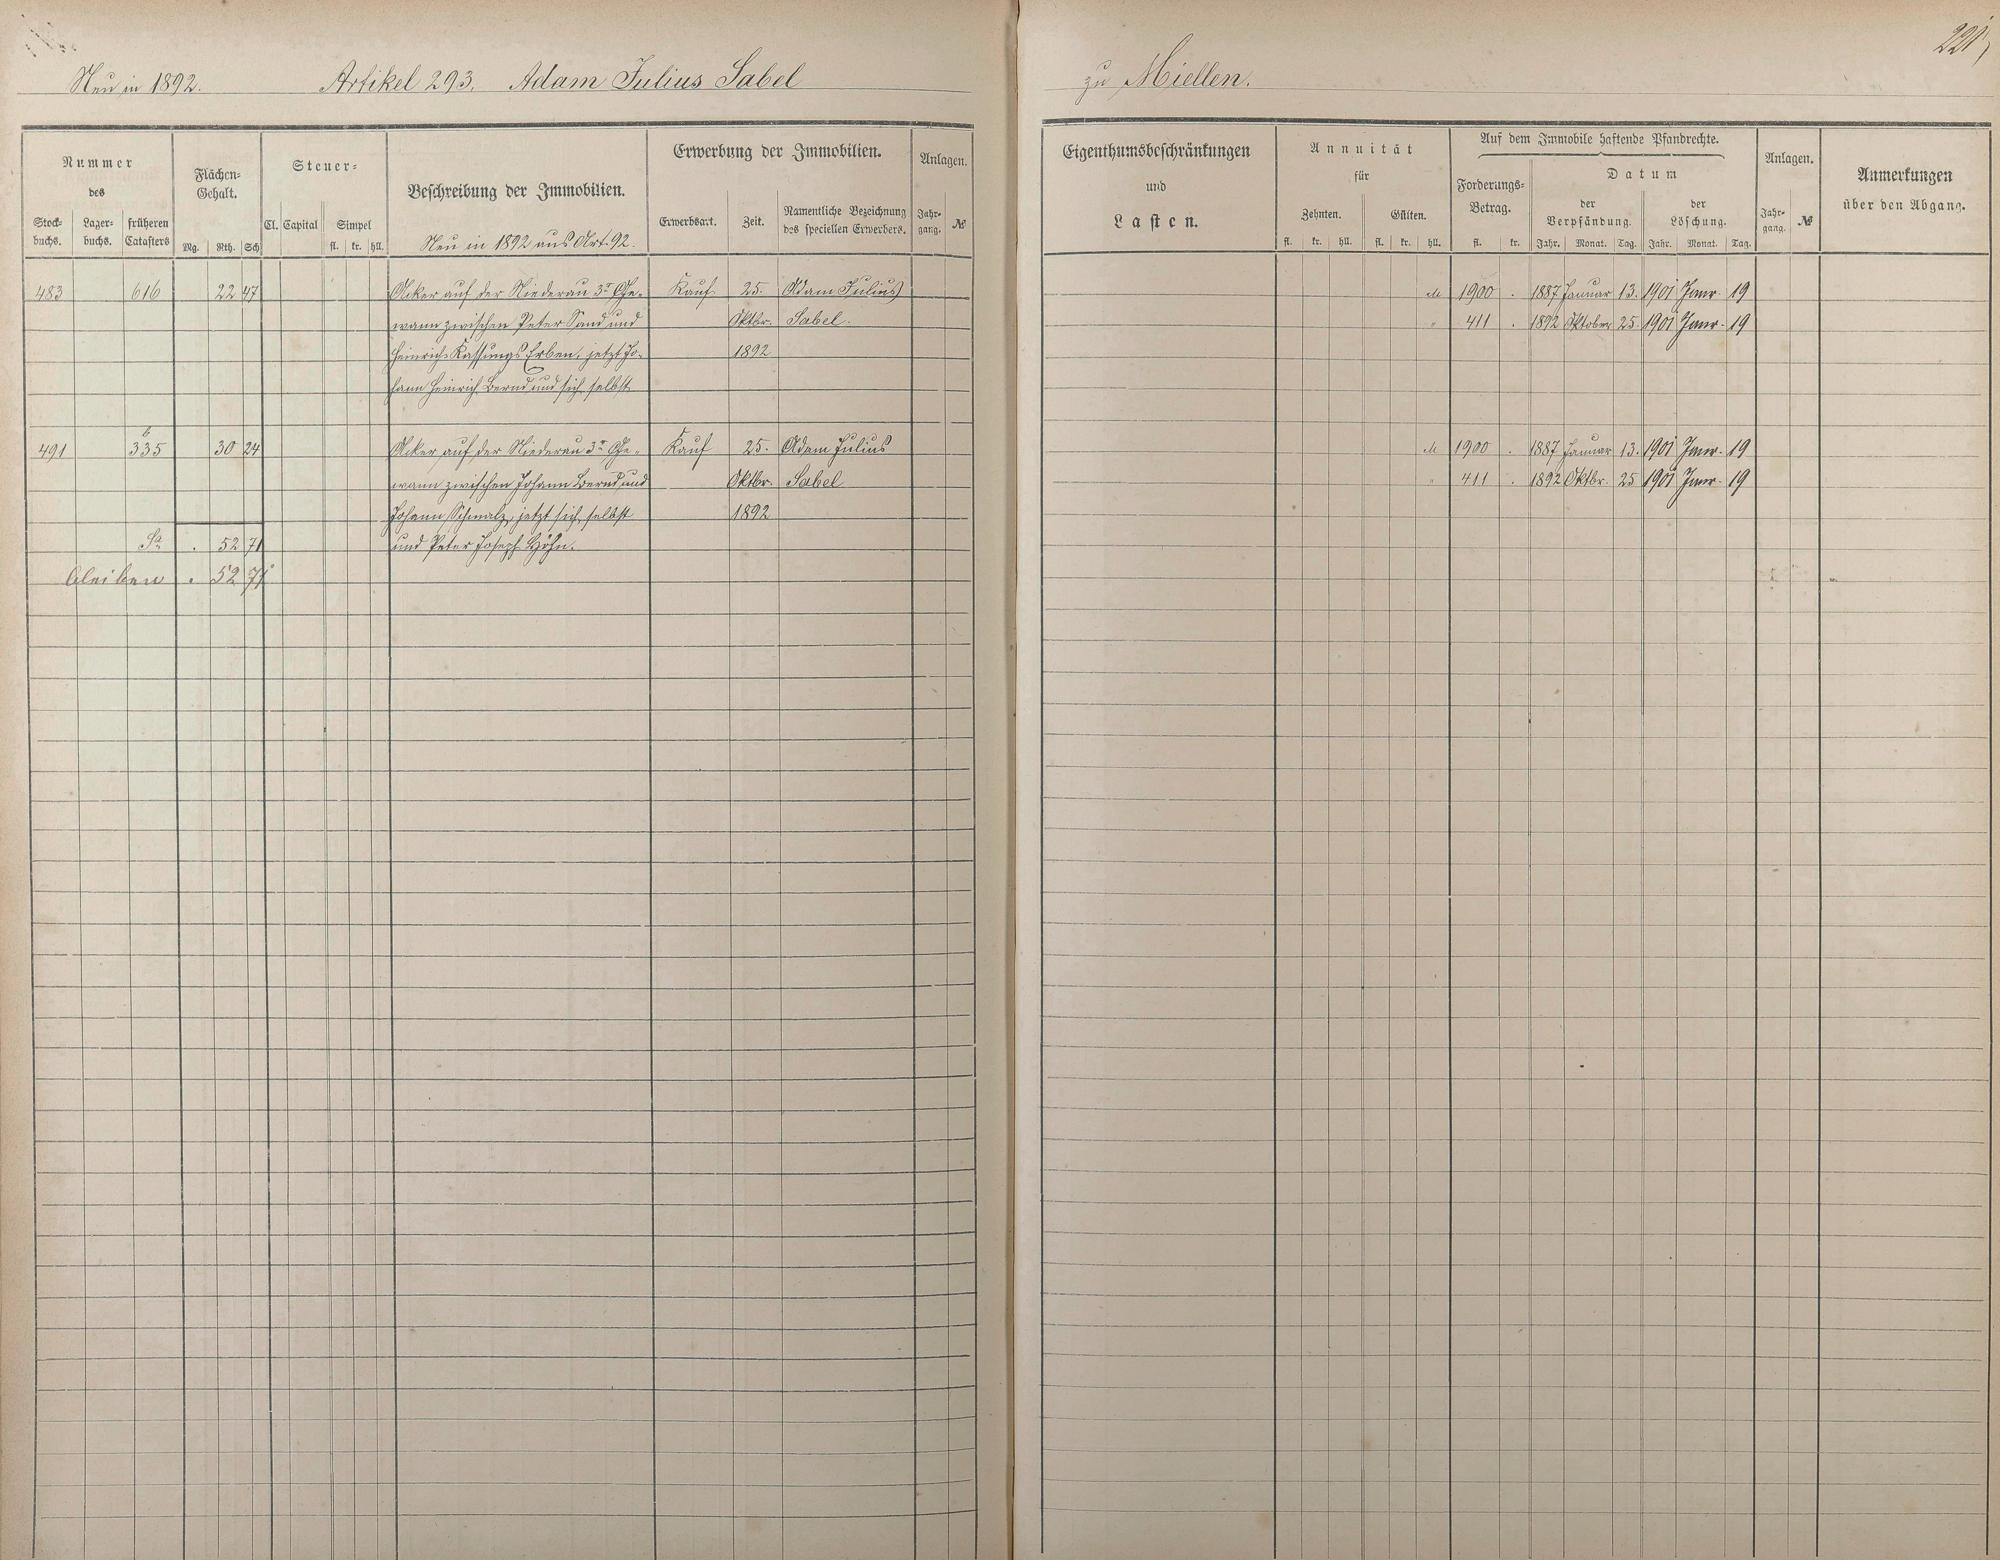 221
Neu in 1892. Artikel 293. Adam Julius Sabel zu Miellen.
Nummer
des
Stock-buchs. Lager-buchs. früheren Catasters
Flächen-Gehalt.
Mg. Rth. Sch
Steuer-
Cl. Capital Simpel
fl. kr. hll.
Beschreibung der Immobilien.
Neu in 1892 aus Art. 92.
Erwerbung der Immobilien.
Erwerbsart. Zeit. Namentliche Bezeichnung des speciellen Erwerbers.
Anlagen.
Jahr-gang. №
Eigenthumsbeschränkungen
und
Lasten.
Annuität
für
Zehnten. Gülten.
fl. kr. hll. fl. kr. hll.
Auf dem Immobile haftende Pfandrechte.
Forderungs-Betrag.
fl. kr.
Datum
der Verpfändung. der Löschung.
Jahr. Monat. Tag. Jahr. Monat. Tag.
Anlagen.
Jahr-gang. №
Anmerkungen
über den Abgang.
483 616 22 47 Acker auf der Niederau 3r Ge- Kauf 25. Adam Julius M 1900 . 1887 Januar 13. 1901 Janr. 19
wann zwischen Peter Sand und Oktbr. Sabel. " 411 . 1892 Oktober 25. 1901 Janr. 19
Heinrich Kassungs Erben, jetzt Jo- 1892
hann Heinrich Bernd und sich selbst
491 335 30 24 Acker auf der Niederau 3r Ge- Kauf 25. Adam Julius M 1900 . 1887 Januar 13. 1901 Janr. 19
wann zwischen Johann Bernd und Oktbr. Sabel " 411 . 1892 Oktbr. 25 1901 Janr. 19
Johann Schmalz, jetzt sich selbst 1892
Sa . 52 71 und Peter Joseph Höhn.
bleiben . 52 71